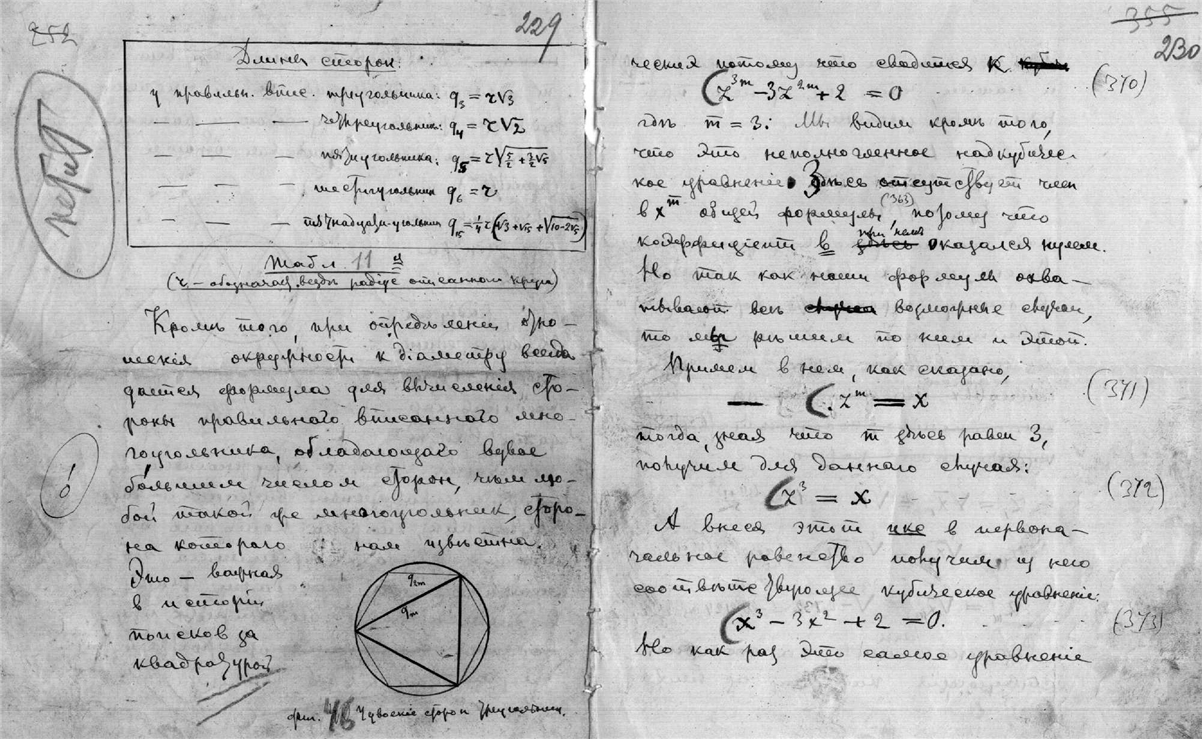 252
229
Длина сторон:
у правильн. впис. треугольника: q₃ = r√3
— — — четыреугольник: q₄ = r√2
— — — пятиугольника: q₅ = r√(5/2 + 1/2√5)
— — — шестиугольник q₆ = r
— — — пятнадцати-угольник q₁₅ = ¼ r(√3 + √15 + √(10-2√5))
Табл 11
(r – обозначая везде радіус описаннаго круга)
петит
Кромѣ того, при опредѣленіи отно-
шенія окружности к діаметру всегда
дается формула для вычисленія сто-
роны правильнаго вписаннаго мно-
гоугольника, обладающаго вдвое
бо́льшим числом сторон, чѣм лю-
бой такой же многоугольник, сторо-
на котораго нам извѣстна.
Это – важная
в исторіи
поисков за
квадратурой
!
q₂ₘ
qₘ
фиг. 46 сторон треугольник.
355
230
ческія потому что сводится к
z³ᵐ - 3z²ᵐ + 2 = 0 (370)
гдѣ m = 3: Мы видим кромѣ того,
что это неполночленное надкубичес-
кое уравненіе. Здѣсь отсутствует член
в xᵐ общей формулы (363), потому что
коэффиціент при нем в здѣсь оказался нулем.
Но так как наши формулы охва-
тывают всѣ случаи возможные случаи,
то мы рѣшим по ним и этот.
Примем в нем, как сказано,
— zᵐ = x (371)
тогда, зная что m здѣсь равен 3,
получим для даннаго случая:
z³ = x (372)
А внеся этот икс в первона-
чальное равенство получим из него
соотвѣтствующее кубическое уравненіе:
x³ - 3x² + 2 = 0. (373)
Но как раз это самое уравненіе